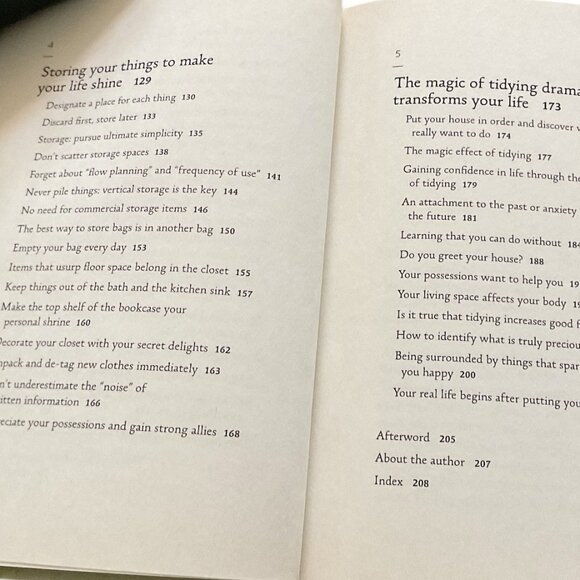 4
Storing your things to make
your life shine 129
Designate a place for each thing 130
Discard first, store later 133
Storage: pursue ultimate simplicity 135
Don't scatter storage spaces 138
Forget about "flow planning" and "frequency of use" 141
Never pile things: vertical storage is the key 144
No need for commercial storage items 146
The best way to store bags is in another bag 150
Empty your bag every day 153
Items that usurp floor space belong in the closet 155
Keep things out of the bath and the kitchen sink 157
Make the top shelf of the bookcase your
personal shrine 160
Decorate your closet with your secret delights 162
and de-tag new clothes immediately 163
underestimate the "noise" of
information 166
your possessions and gain strong allies 168
5
The magic of tidying
transforms your life 173
Put your house in order and discover
really want to do 174
The magic effect of tidying 177
Gaining confidence in life through the
of tidying 179
An attachment to the past or anxiety
the future 181
Learning that you can do without 184
Do you greet your house? 188
Your possessions want to help you
Your living space affects your body
Is it true that tidying increases good
How to identify what is truly
Being surrounded by things that
you happy 200
Your real life begins after putting
Afterword 205
About the author 207
Index 208